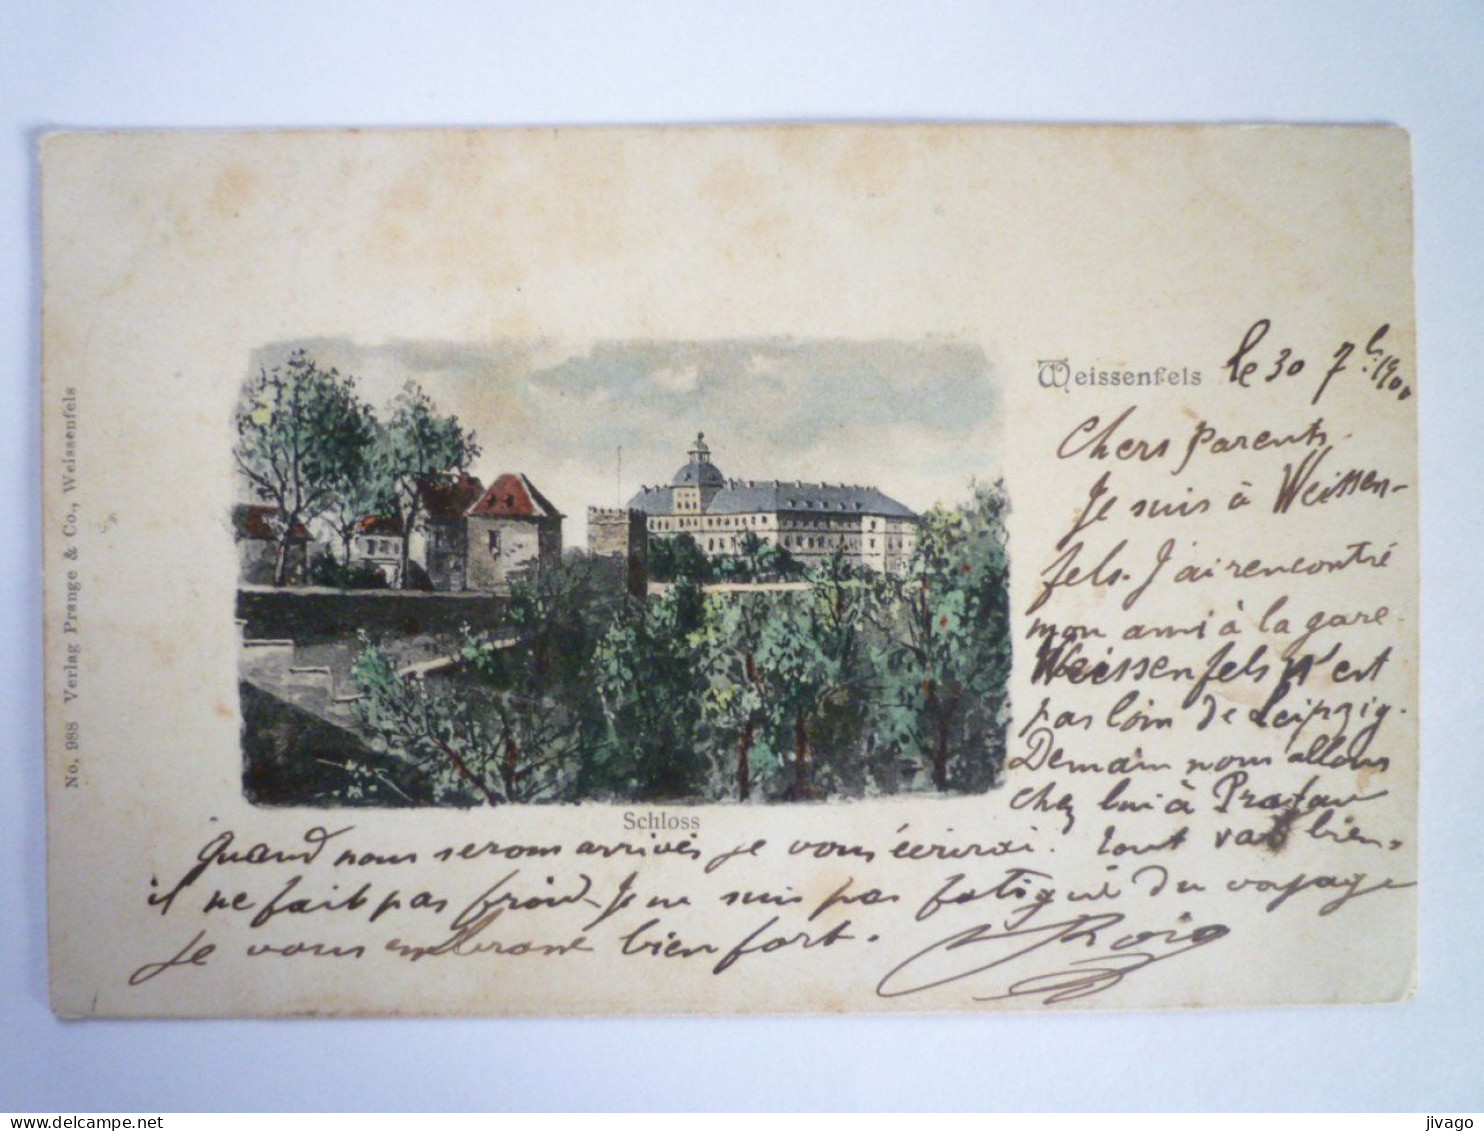 No. 988 Verlag Prange & Co., Weissenfels
Weissenfels
le 30 7b. 1900
Chers parents.
Je suis à Weissen-
fels. J'ai rencontré
mon ami à la gare.
Weissenfels n'est
pas loin de Leipzig.
Demain nous allons
chez lui à
Schloss
tout va bien.
Quand nous serons arrivés je vous écrirai.
il ne fait pas froid. Je ne suis pas fatigué du voyage
je vous embrasse bien fort.
www.delcampe.net
jivago